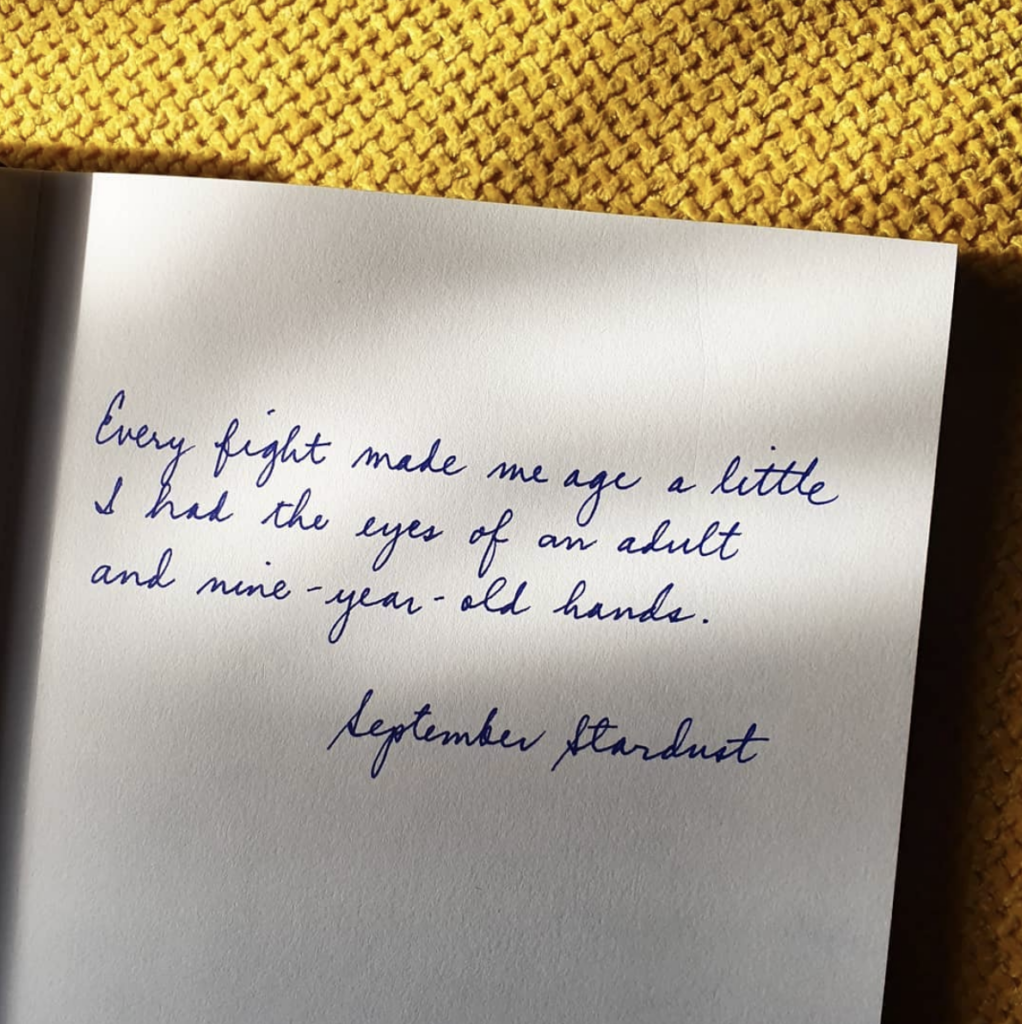 Every fight made me age a little
I had the eyes of an adult
and nine-year-old hands.
September Stardust